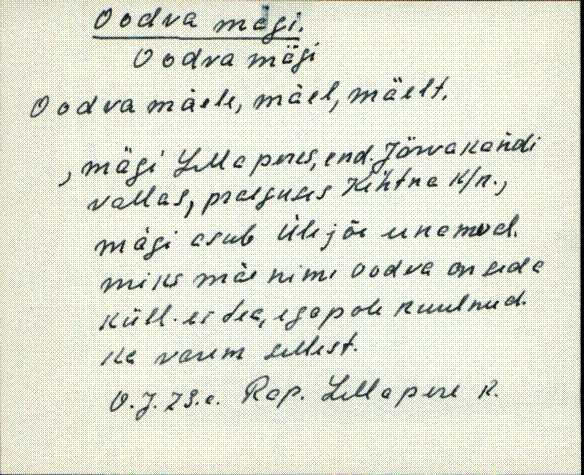 Oodva mägi.
Oodva mägi
Oodva mäele, mäel, mäelt.
, mägi Lellaperes, end. Järvakandi
vallas, praeguses Kehtna k/n.,
mägi asub Ülejõe unamud.
miks mäe nimi oodva on seda
küll. ei tea, ega pole kuulnud.
ka varem sellest.
O. J. 73.a. Rap. Lellapere k.